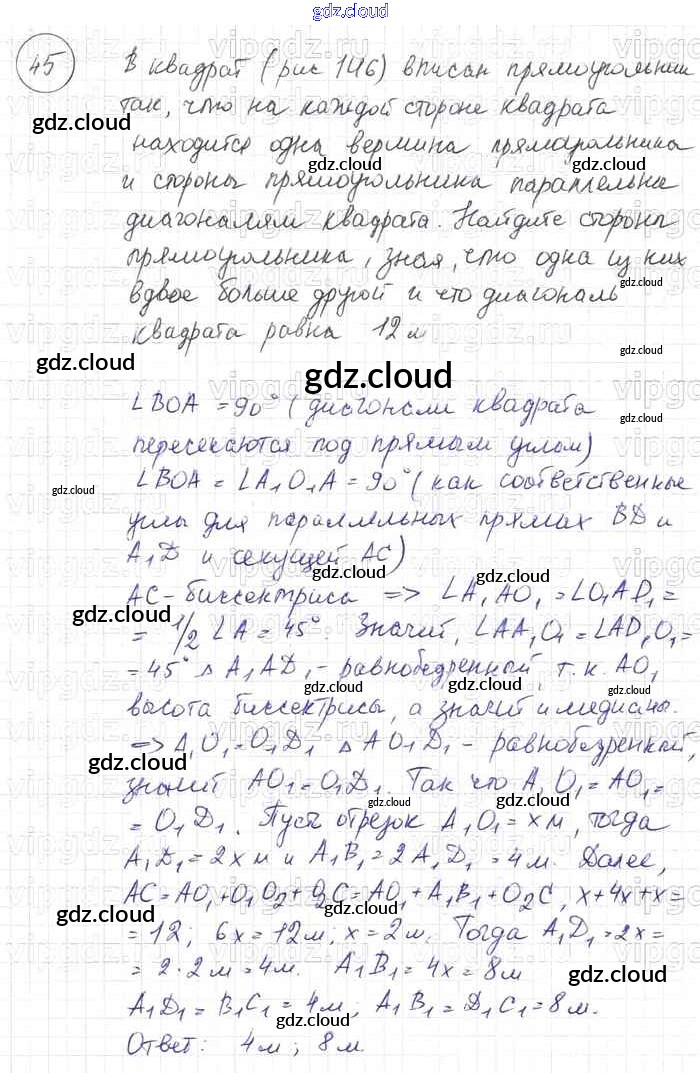 gdz.cloud
45
В квадрат (рис 146) вписан прямоугольник
так, что на каждой стороне квадрата
находится одна вершина прямоугольника
и стороны прямоугольника параллельны
диагоналям квадрата. Найдите стороны
прямоугольника, зная, что одна из них
вдвое больше другой и что диагональ
квадрата равна 12 м
gdz.cloud
∠BOA = 90° (диагонали квадрата
пересекаются под прямым углом)
∠BOA = ∠A₁O₁A = 90° (как соответственные
углы для параллельных прямых BD и
A₁D и секущей AC)
AC - биссектриса => ∠A₁AO₁ = ∠O₁AD₁ =
= 1/2 ∠A = 45°. Значит, ∠AA₁O₁ = ∠AD₁O₁ =
= 45° △ A₁AD₁ - равнобедренной, т.к. AO₁
высота биссектрисы, а значит и медианы.
=> A₁O₁ = O₁D₁ △ AO₁D₁ - равнобедренной,
значит AO₁ = O₁D₁. Так что A₁O₁ = AO₁ =
= O₁D₁. Пусть отрезок A₁O₁ = x м, тогда
A₁D₁ = 2x м и A₁B₁ = 2A₁D₁ = 4м. Далее,
AC = AO₁ + O₁O₂ + O₂C = AO₁ + A₁B₁ + O₂C, x + 4x + x =
= 12; 6x = 12м; x = 2м. Тогда A₁D₁ = 2x =
= 2·2м = 4м. A₁B₁ = 4x = 8м
A₁D₁ = B₁C₁ = 4м; A₁B₁ = D₁C₁ = 8м.
Ответ: 4м; 8м.
gdz.cloud